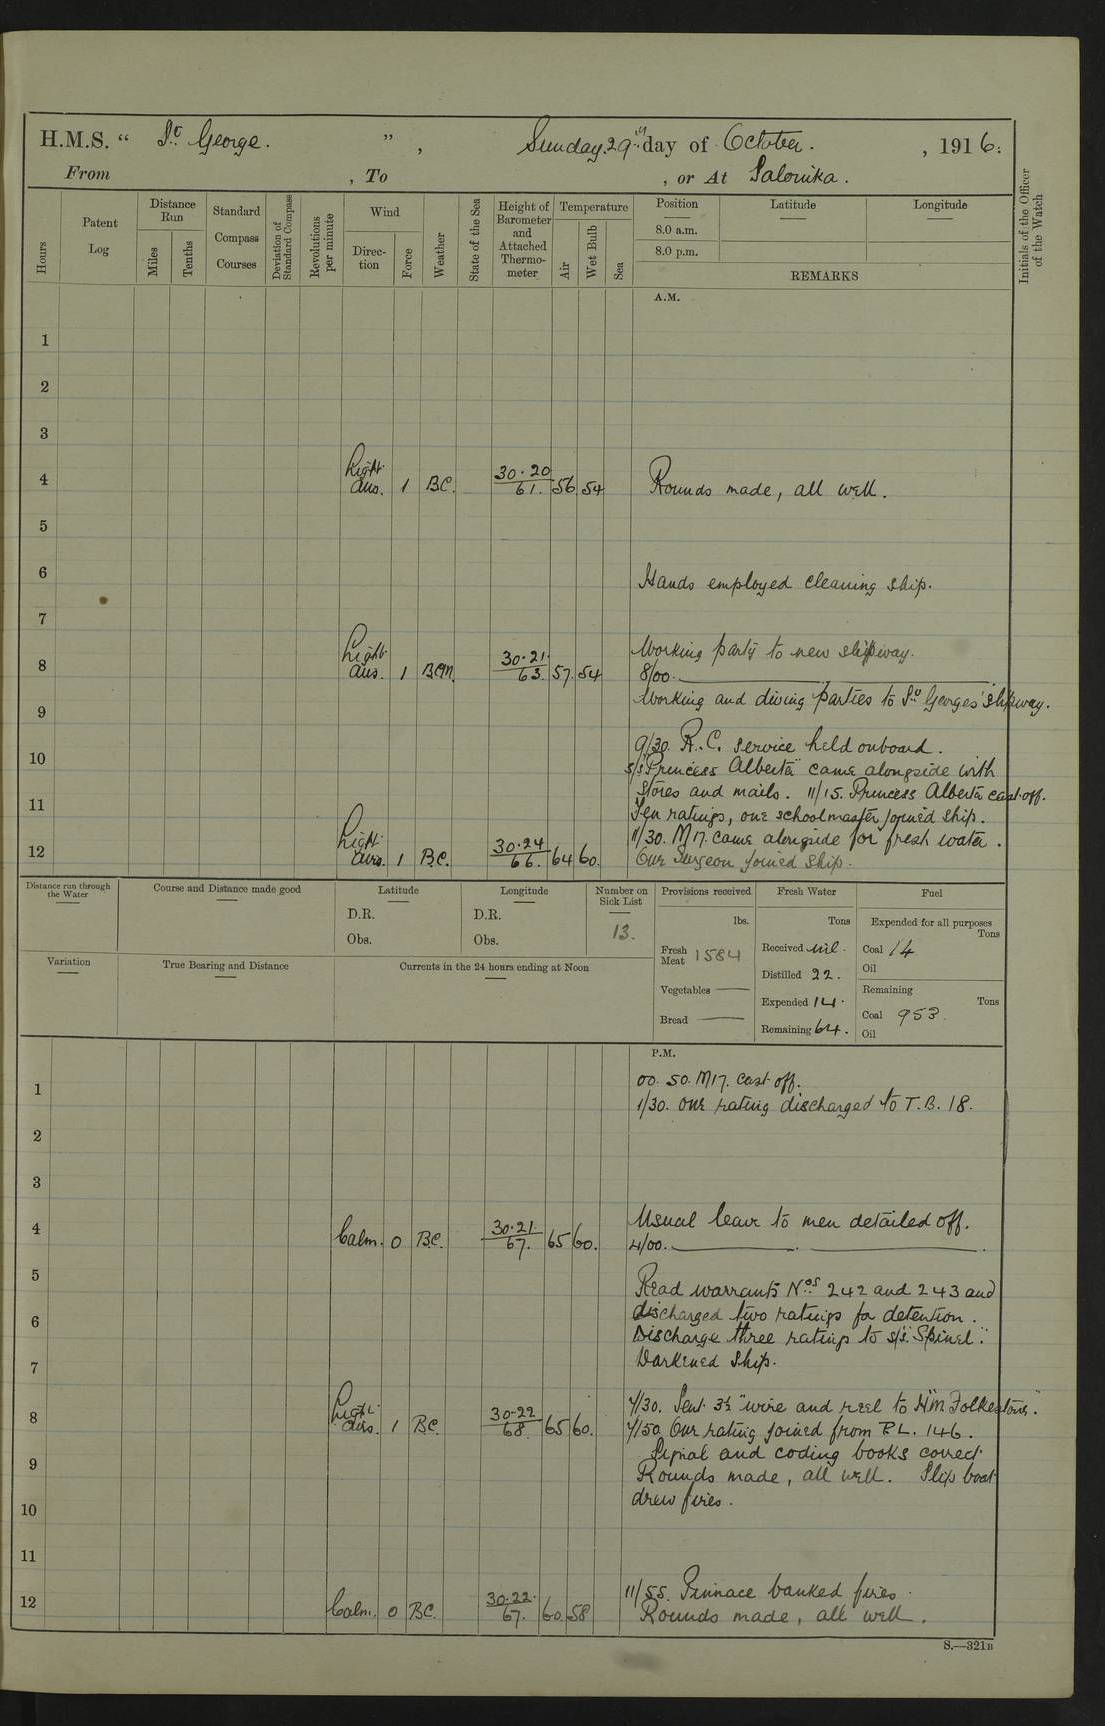 H.M.S. " St George. " , Sunday. 29th day of October. , 1916.
From , To , or At Salonika.
Hours
Patent Log
Distance Run
Miles
Tenths
Standard Compass Courses
Deviation of Standard Compass
Revolutions per minute
Wind
Direction
Force
Weather
State of the Sea
Height of Barometer and Attached Thermometer
Temperature
Air
Wet Bulb
Sea
Position
8.0 a.m.
8.0 p.m.
Latitude
Longitude
REMARKS
Initials of the Officer of the Watch
A.M.
1
2
3
4 Light airs. 1 BC. 30.20 61. 56 54 Rounds made, all well.
5
6 Hands employed cleaning ship.
7
Working party to new slipway.
8 Light airs. 1 BCM. 30.21. 63. 57. 54 8/00.
Working and diving parties to St Georges slipway.
9
9/30. R.C. service held onboard.
10 s/s "Princess Alberta" came alongside with
stores and mails. 11/15. Princess Alberta cast off.
11 Ten ratings, one schoolmaster joined ship.
11/30. M17. came alongside for fresh water.
12 Light airs. 1 B.C. 30.24 66. 64 60. One Surgeon joined ship.
Distance run through the Water
Course and Distance made good
Latitude
D.R.
Obs.
Longitude
D.R.
Obs.
Number on Sick List
13.
Provisions received
lbs.
Fresh Meat 1584
Vegetables
Bread
Fresh Water
Tons
Received nil.
Distilled 22.
Expended 14.
Remaining 64.
Fuel
Expended for all purposes
Tons
Coal 14
Oil
Remaining
Tons
Coal 953.
Oil
Variation
True Bearing and Distance
Currents in the 24 hours ending at Noon
P.M.
00.50. M17. cast off.
1 1/30. One rating discharged to T.B. 18.
2
3
Usual leave to men detailed off.
4 Calm. 0 BC. 30.21. 67. 65 60. 4/00.
5 Read warrants Nos 242 and 243 and
6 discharged two ratings for detention.
Discharge three ratings to s/s. "Spinel".
7 Darkened Ship.
7/30. Sent 3½" wire and reel to HM "Folkestone."
8 Light airs. 1 BC. 30.22 68. 65 60. 7/50 One rating joined from P.L. 146.
Signal and coding books correct
9 Rounds made, all well. Slip boat
drew fires.
10
11
11/55. Pinnace banked fires.
12 Calm. 0 BC. 30.22. 67. 60. 58 Rounds made, all well.
S.—321B